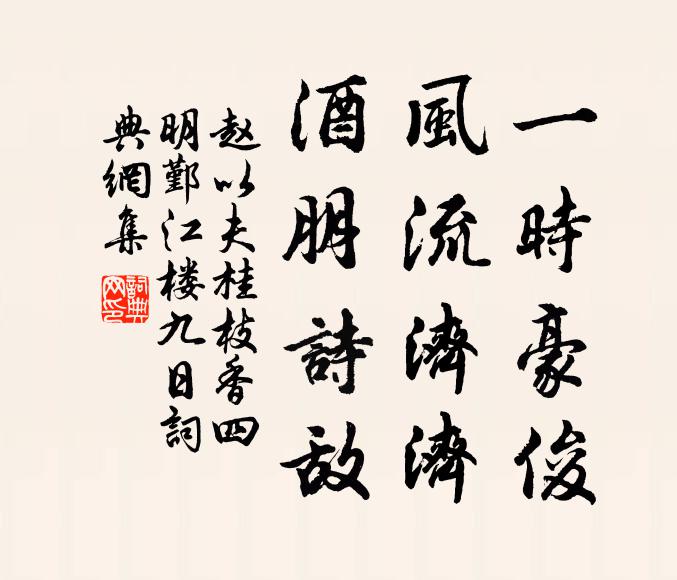 一時豪俊
風流濟濟
酒朋詩敌
赵以夫桂枝香四
明鄞江楼九日詞
典網集
詞典網印